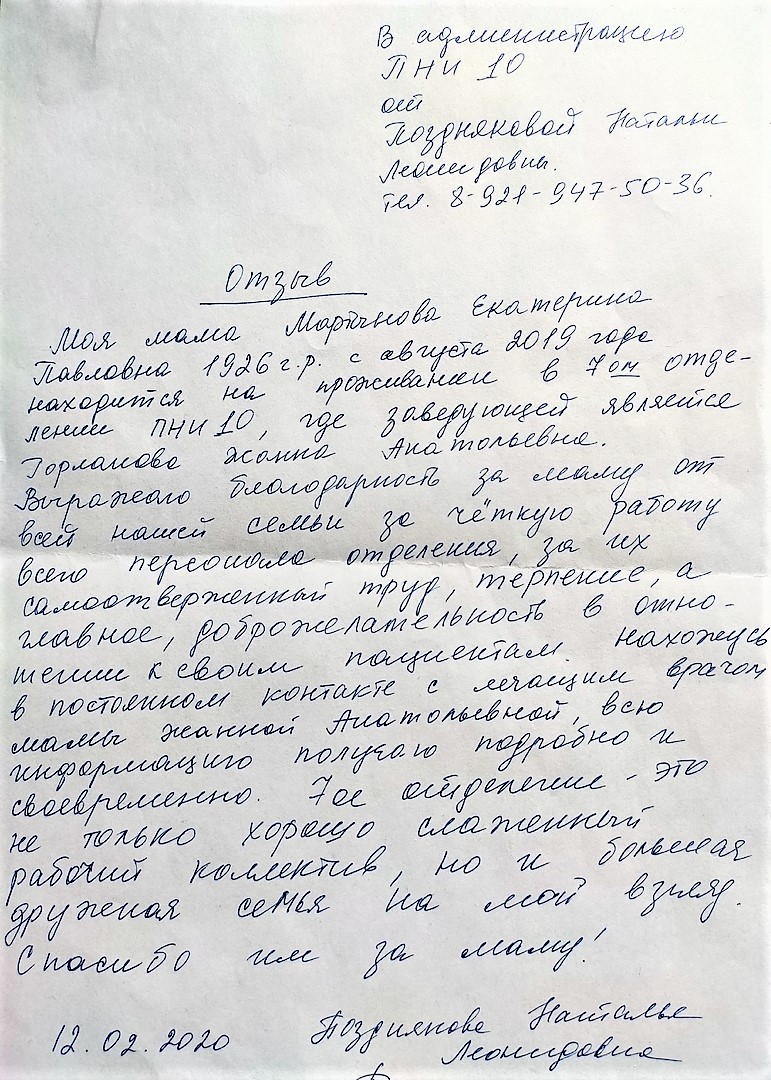 В администрацию
ПНИ 10
от
Поздняковой Натальи
Леонидовны.
тел. 8-921-947-50-36.
Отзыв
Моя мама Мартынова Екатерина
Павловна 1926 г.р. с августа 2019 года
находится на проживании в 7ом отде-
лении ПНИ 10, где заведующей является
Горланова Жанна Анатольевна.
Выражаю благодарность за маму от
всей нашей семьи за чёткую работу
всего персонала отделения, за их
самоотверженный труд, терпение, а
главное, доброжелательность в отно-
шении к своим пациентам. Нахожусь
в постоянном контакте с лечащим врачом
мамы Жанной Анатольевной, всю
информацию получаю подробно и
своевременно. 7ое отделение - это
не только хорошо слаженный
рабочий коллектив, но и большая
дружная семья на мой взгляд.
Спасибо им за маму!
12.02.2020 Позднякова Наталья
Леонидовна